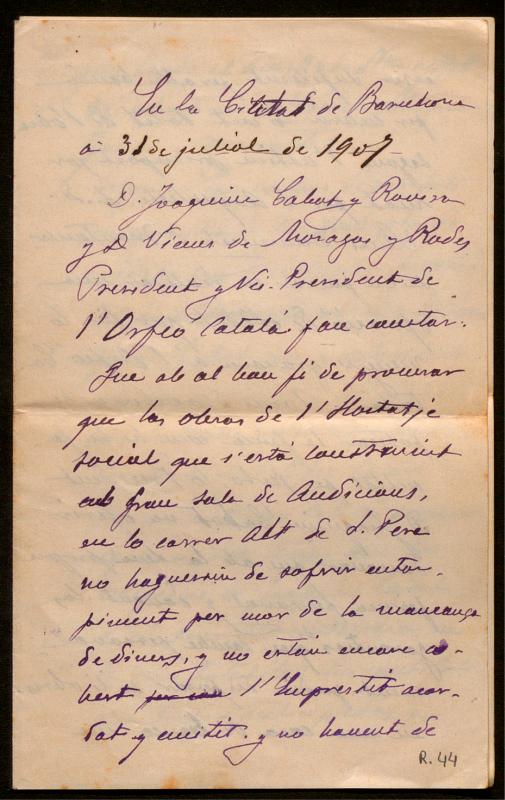 En la Ciutat de Barcelona
a 31 de juliol de 1907
D. Joaquim Cabot y Rovira
y D Vicens de Moragas y Rodes
President y Vis-President de
l'Orfeó Catalá fan constar.
Que ab al bon fi de procurar
que las obras de l'Hostatje
social que s'está construint
ab Gran sala de Audicions,
en lo carrer Alt de S. Pere
no haguessin de sofrir entor-
piment per mor de la mancança
de diners, y no estan encare co-
bert l'Emprestit acor-
dat y emitit. y no havent de
R. 44